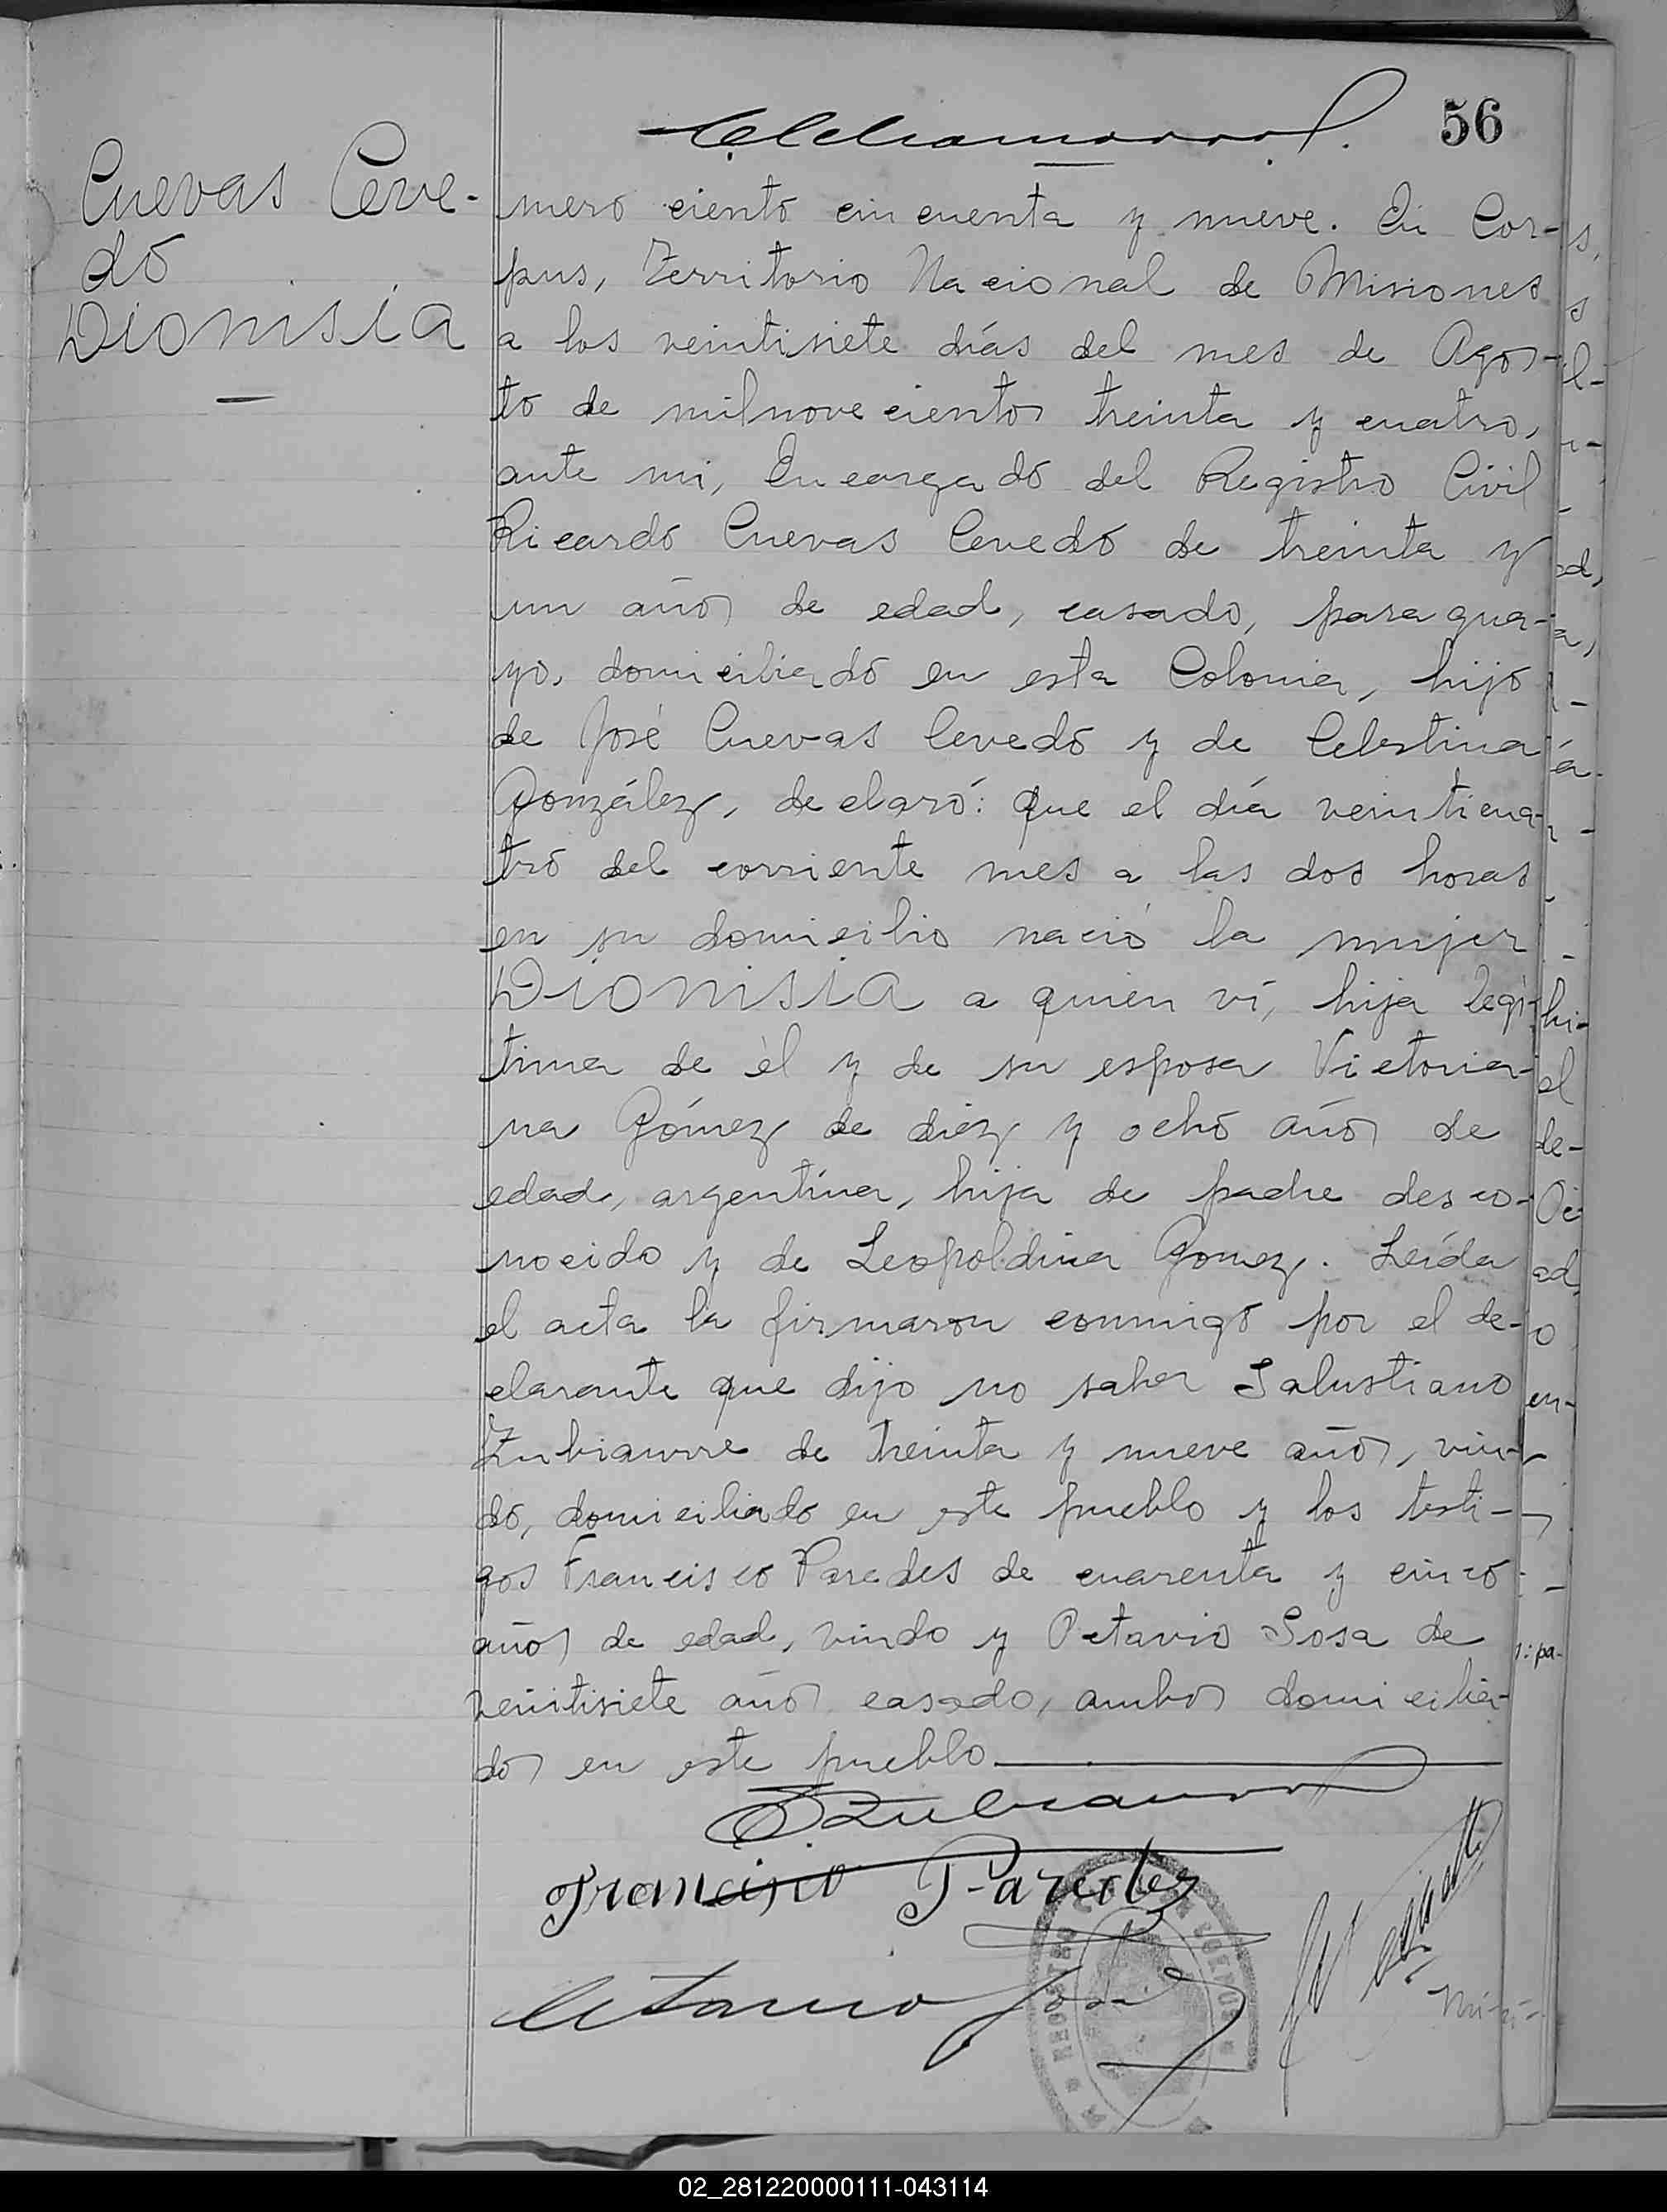 56
Cuevas Ceve-
do
Dionisia
mero ciento cincuenta y nueve. En Cor-
pus, Territorio Nacional de Misiones
a los veintisiete días del mes de Agos-
to de milnovecientos treinta y cuatro,
ante mi, Encargado del Registro Civil
Ricardo Cuevas Cevedo de treinta y
un años de edad, casado, paragua-
yo, domiciliado en esta Colonia, hijo
de José Cuevas Cevedo y de Celestina
González, declaró: que el día veinticua-
tro del corriente mes a las dos horas
en su domicilio nació la mujer
Dionisia a quien ví, hija legí-
tima de él y de su esposa Victoria-
na Gómez de diez y ocho años de
edad, argentina, hija de padre desco-
nocido y de Leopoldina Gomez. Leída
el acta la firmaron conmigo por el de-
clarante que dijo no saber Salustiano
Zubiaurre de treinta y nueve años, viu-
do, domiciliado en este pueblo y los testi-
gos Francisco Paredes de cuarenta y cinco
años de edad, viudo y Octavio Sosa de
veintisiete años casado, ambos domicilia-
dos en este pueblo
SZubiaurre
Francisco Paredez
Octavio Sosa
REGISTRO
02_281220000111-043114